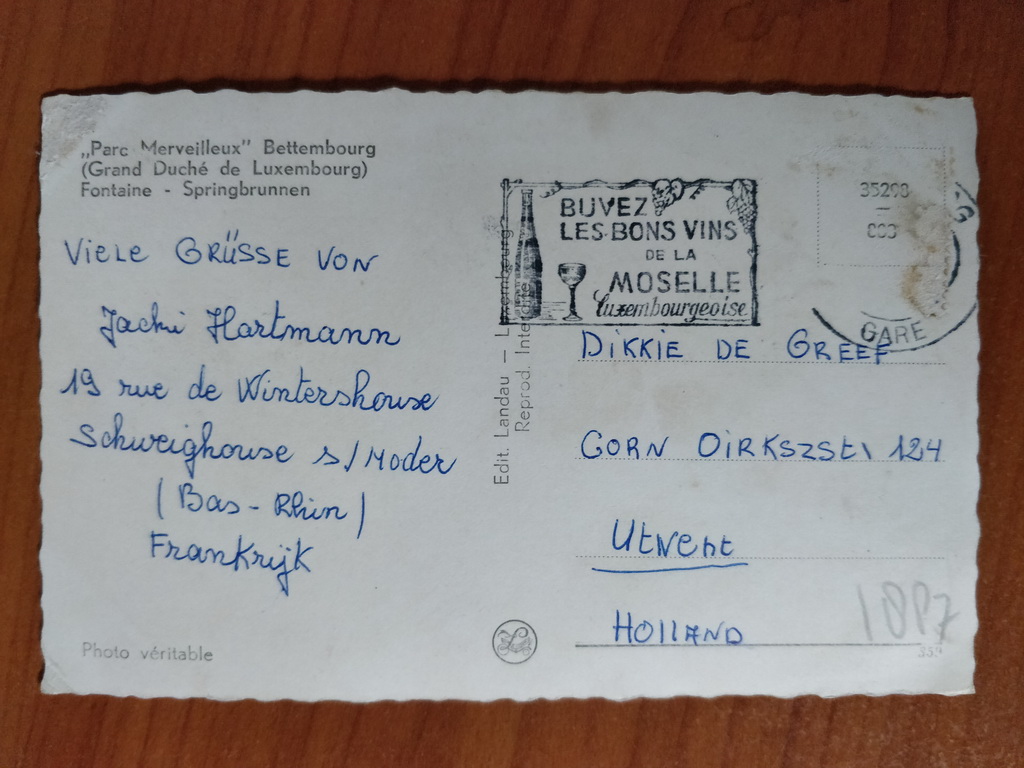 „Parc Merveilleux" Bettembourg
(Grand Duché de Luxembourg)
Fontaine - Springbrunnen
VIELE GRÜSSE VON
Jacki Hartmann
19 rue de Wintershouse
Schweighouse s/Moder
(Bas-Rhin)
Frankrijk
Photo véritable
Edit. Landau — Luxembourg
Reprod. Interdite
BUVEZ
LES BONS VINS
DE LA
MOSELLE
luxembourgeoise
35298
GARE
DIKKIE DE GREEF
CORN DIRKSZSTR 124
Utrecht
HOLLAND
353